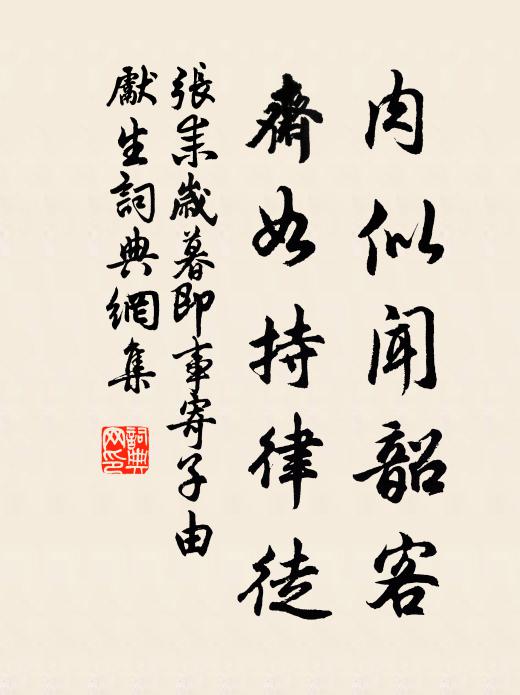 肉似聞韶客
齋如持律徒
張耒歲暮即事寄子由
獻生詞典網集
詞典網印